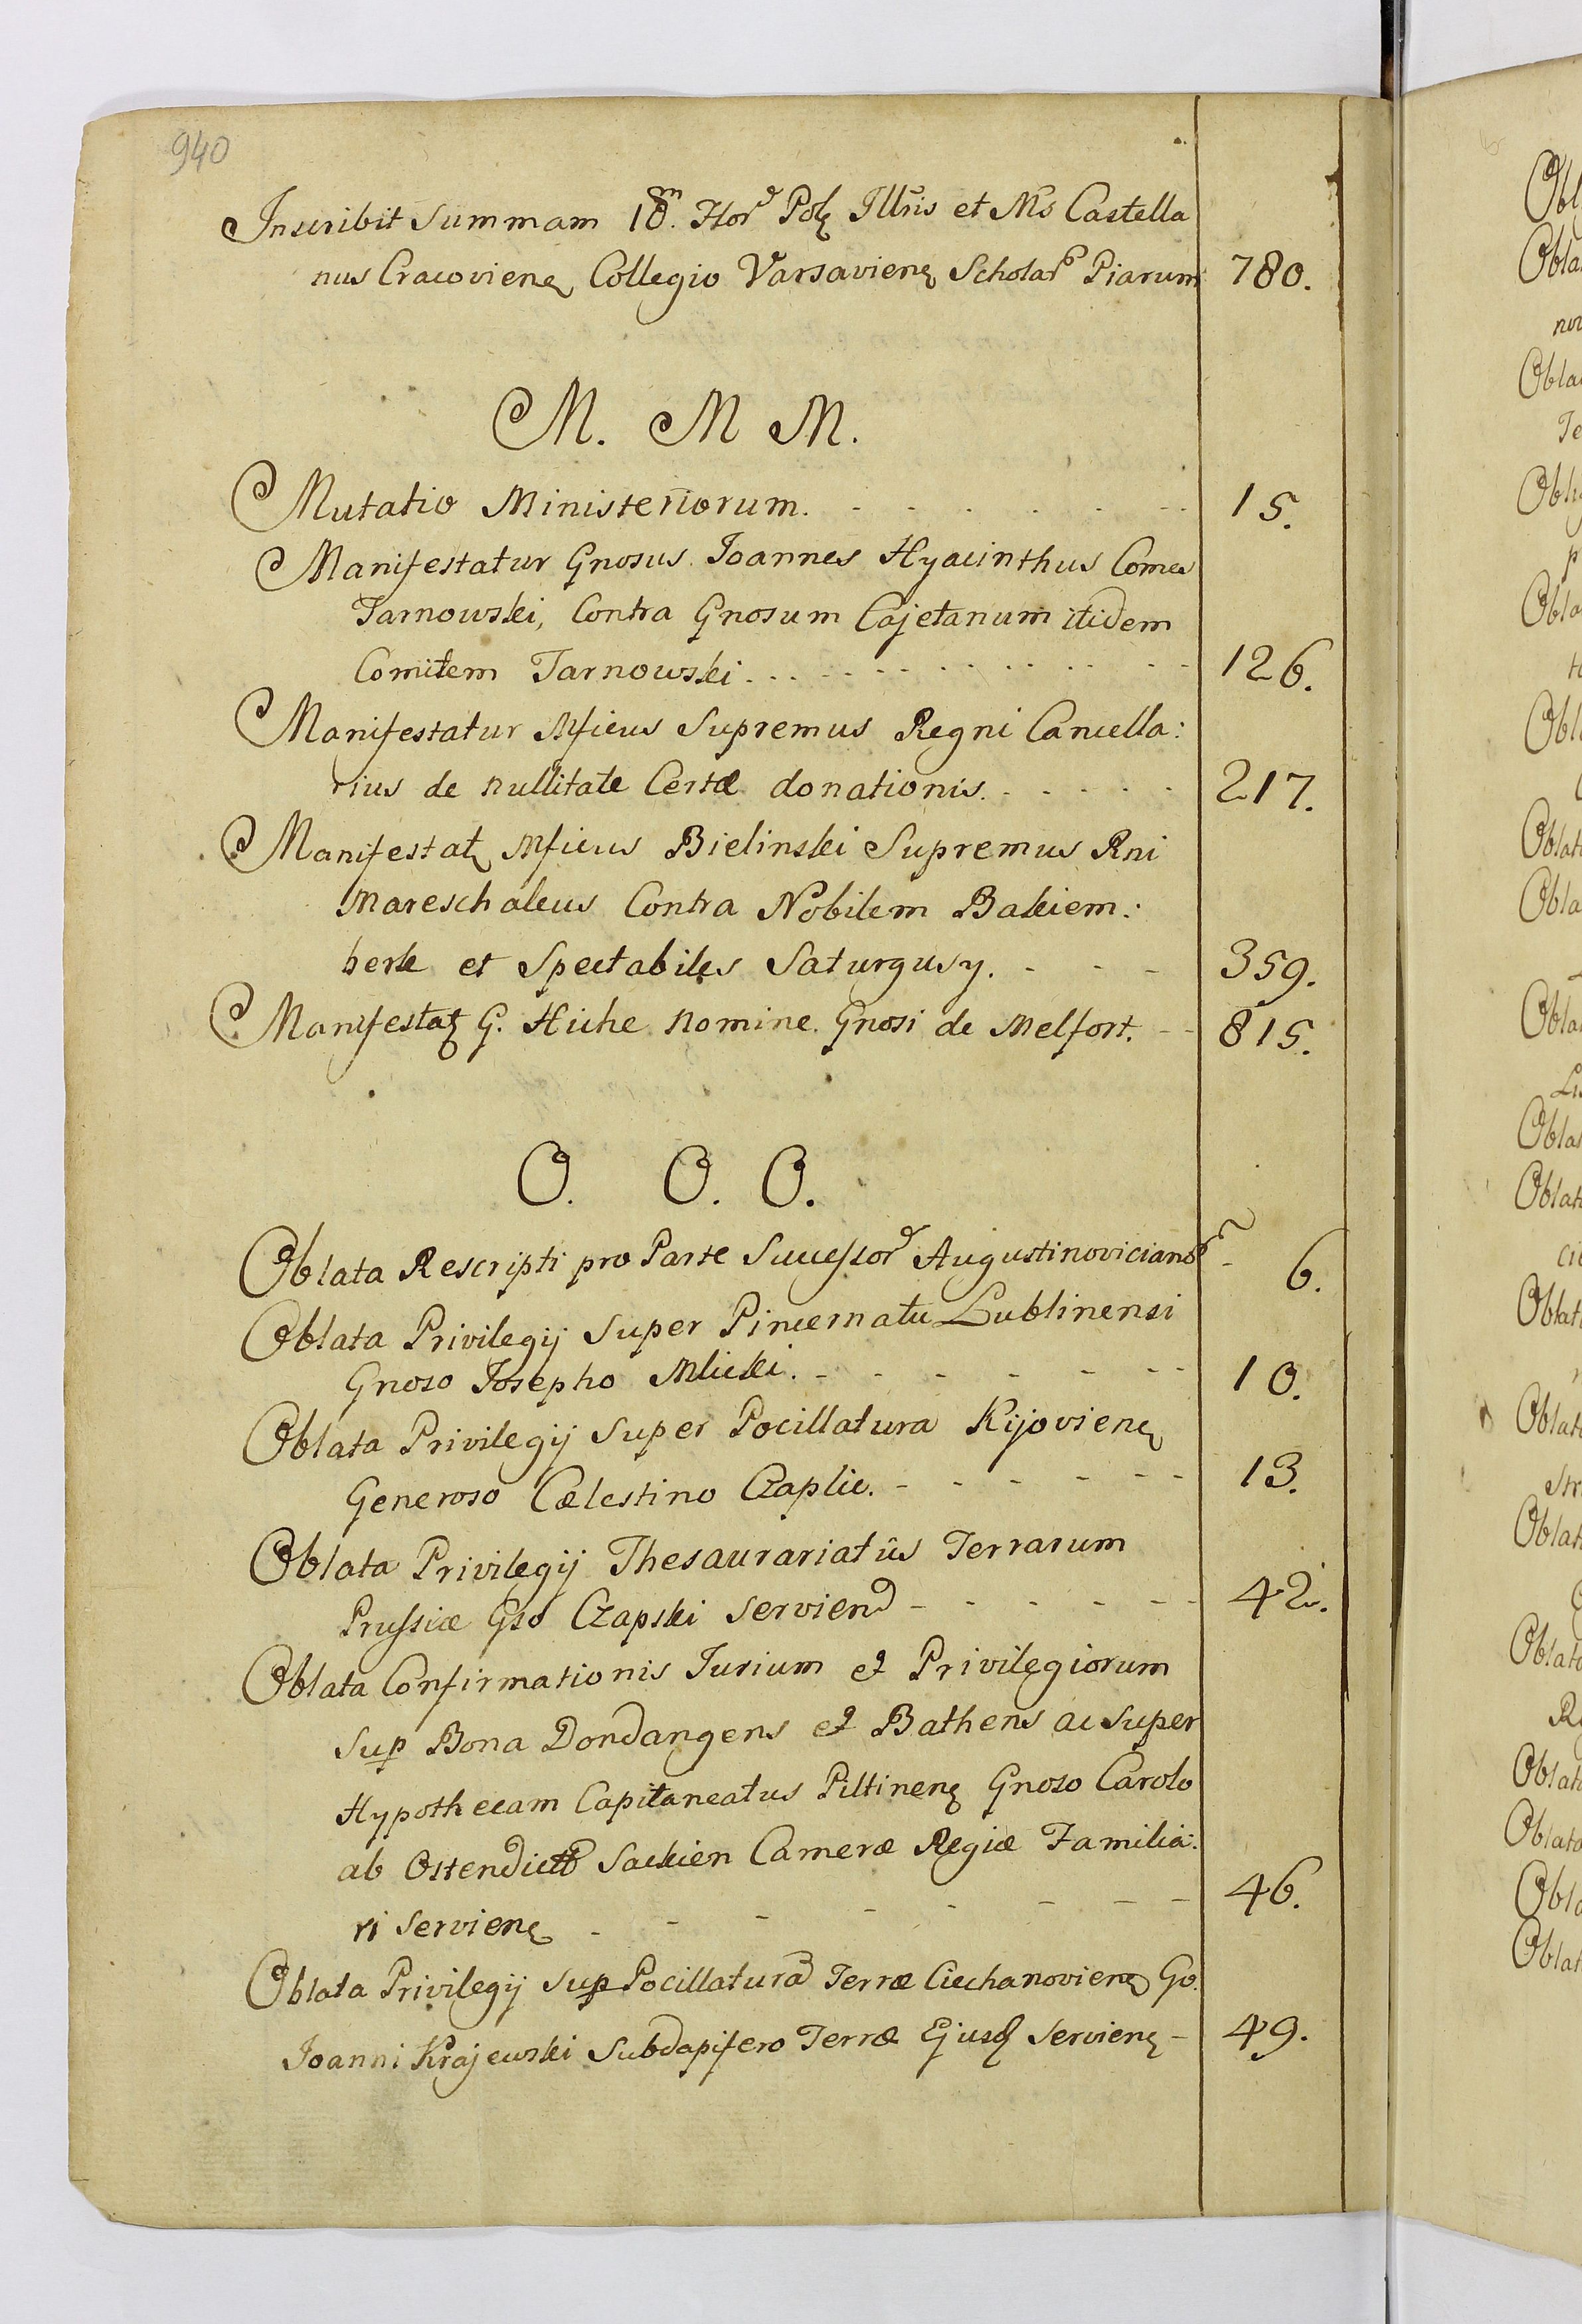 940
Inscribit Summam 18.m Flor Pol Illris et Ms Castella
nus Cracovien Collegio Varsavien Scholar Piarum 780.
M. M M.
Mutatio Ministeriorum. - - - - - - 15.
Manifestatur Gnosus Joannes Hyacinthus Comes
Tarnowski, Contra Gnosum Cajetanum itidem
Comitem Tarnowski. - - - - - - - - 126.
Manifestatur Mficus Supremus Regni Cancella:
rius de nullitate Certæ donationis. - - - - - 217.
Manifestat Mficus Bielinski Supremus Rni
Mareschalcus Contra Nobilem Bakiem:
berk et Spectabiles Saturgusy. - - - 359.
Manifestat G. Hiche nomine Gnosi de Melfort. - - 815.
O. O. O.
Oblata Rescripti pro Parte Successor Augustinovician - 6.
Oblata Privilegij Super Pincernatu Lublinensi
Gnoso Josepho Mlicki. - - - - - - - 10.
Oblata Privilegij Super Pocillatura Kijovien
Generoso Cælestino Czaplic. - - - - - - 13.
Oblata Privilegij Thesaurariatûs Terrarum
Prussiæ Gso Czapski Serviend - - - - - - 42.
Oblata Confirmationis Jurium et Privilegiorum
Sup Bona Dondangens et Bathens ac Super
Hypothecam Capitaneatus Piltinen Gnoso Carolo
ab Ostendict Sackien Cameræ Regiæ Familia:
ri Servien - - - - - - - 46.
Oblata Privilegij Sup Pocillatura Terræ Ciechanovien Go.
Joanni Krajewski Subdapifero Terræ Ejusd Servien - 49.